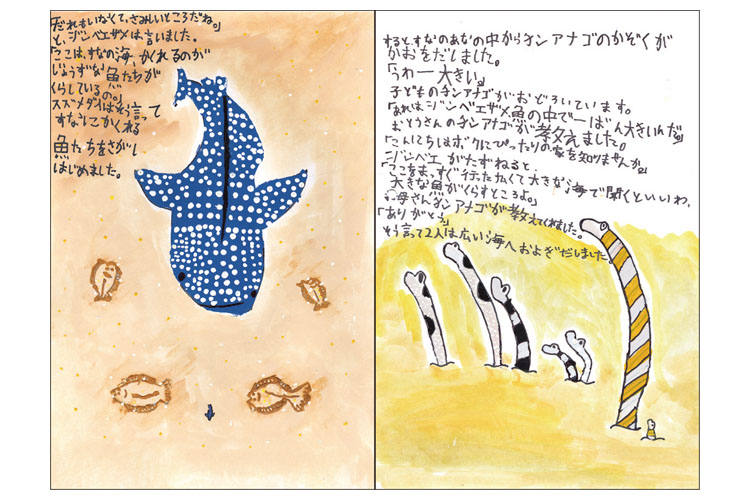 「だれもいなくて、さみしいところだね。」
と、ジンベエザメは言いました。
「ここは、すなの海、かくれるのが
じょうずな魚たちが
くらしているの。」
スズメダイはそう言って
すなにかくれる
魚たちをさがし
はじめました。
すると、すなのあなの中からチンアナゴのかぞくが
かおをだしました。
「うわー大きい。」
子どものチンアナゴがおどろいています。
「あれは、ジンベエザメ魚の中で一ばん大きいんだ。」
おとうさんのチンアナゴが答えました。
「こんにちはボクにぴったりの家を知りませんか。」
ジンベエがたずねると、
「ここをまっすぐ行ったたかくて大きな海で聞くといいわ、
大きな魚がくらすところよ。」
お母さんチンアナゴが教えてくれました。
「ありがとう」
そう言って2人は広い海へおよぎだしました